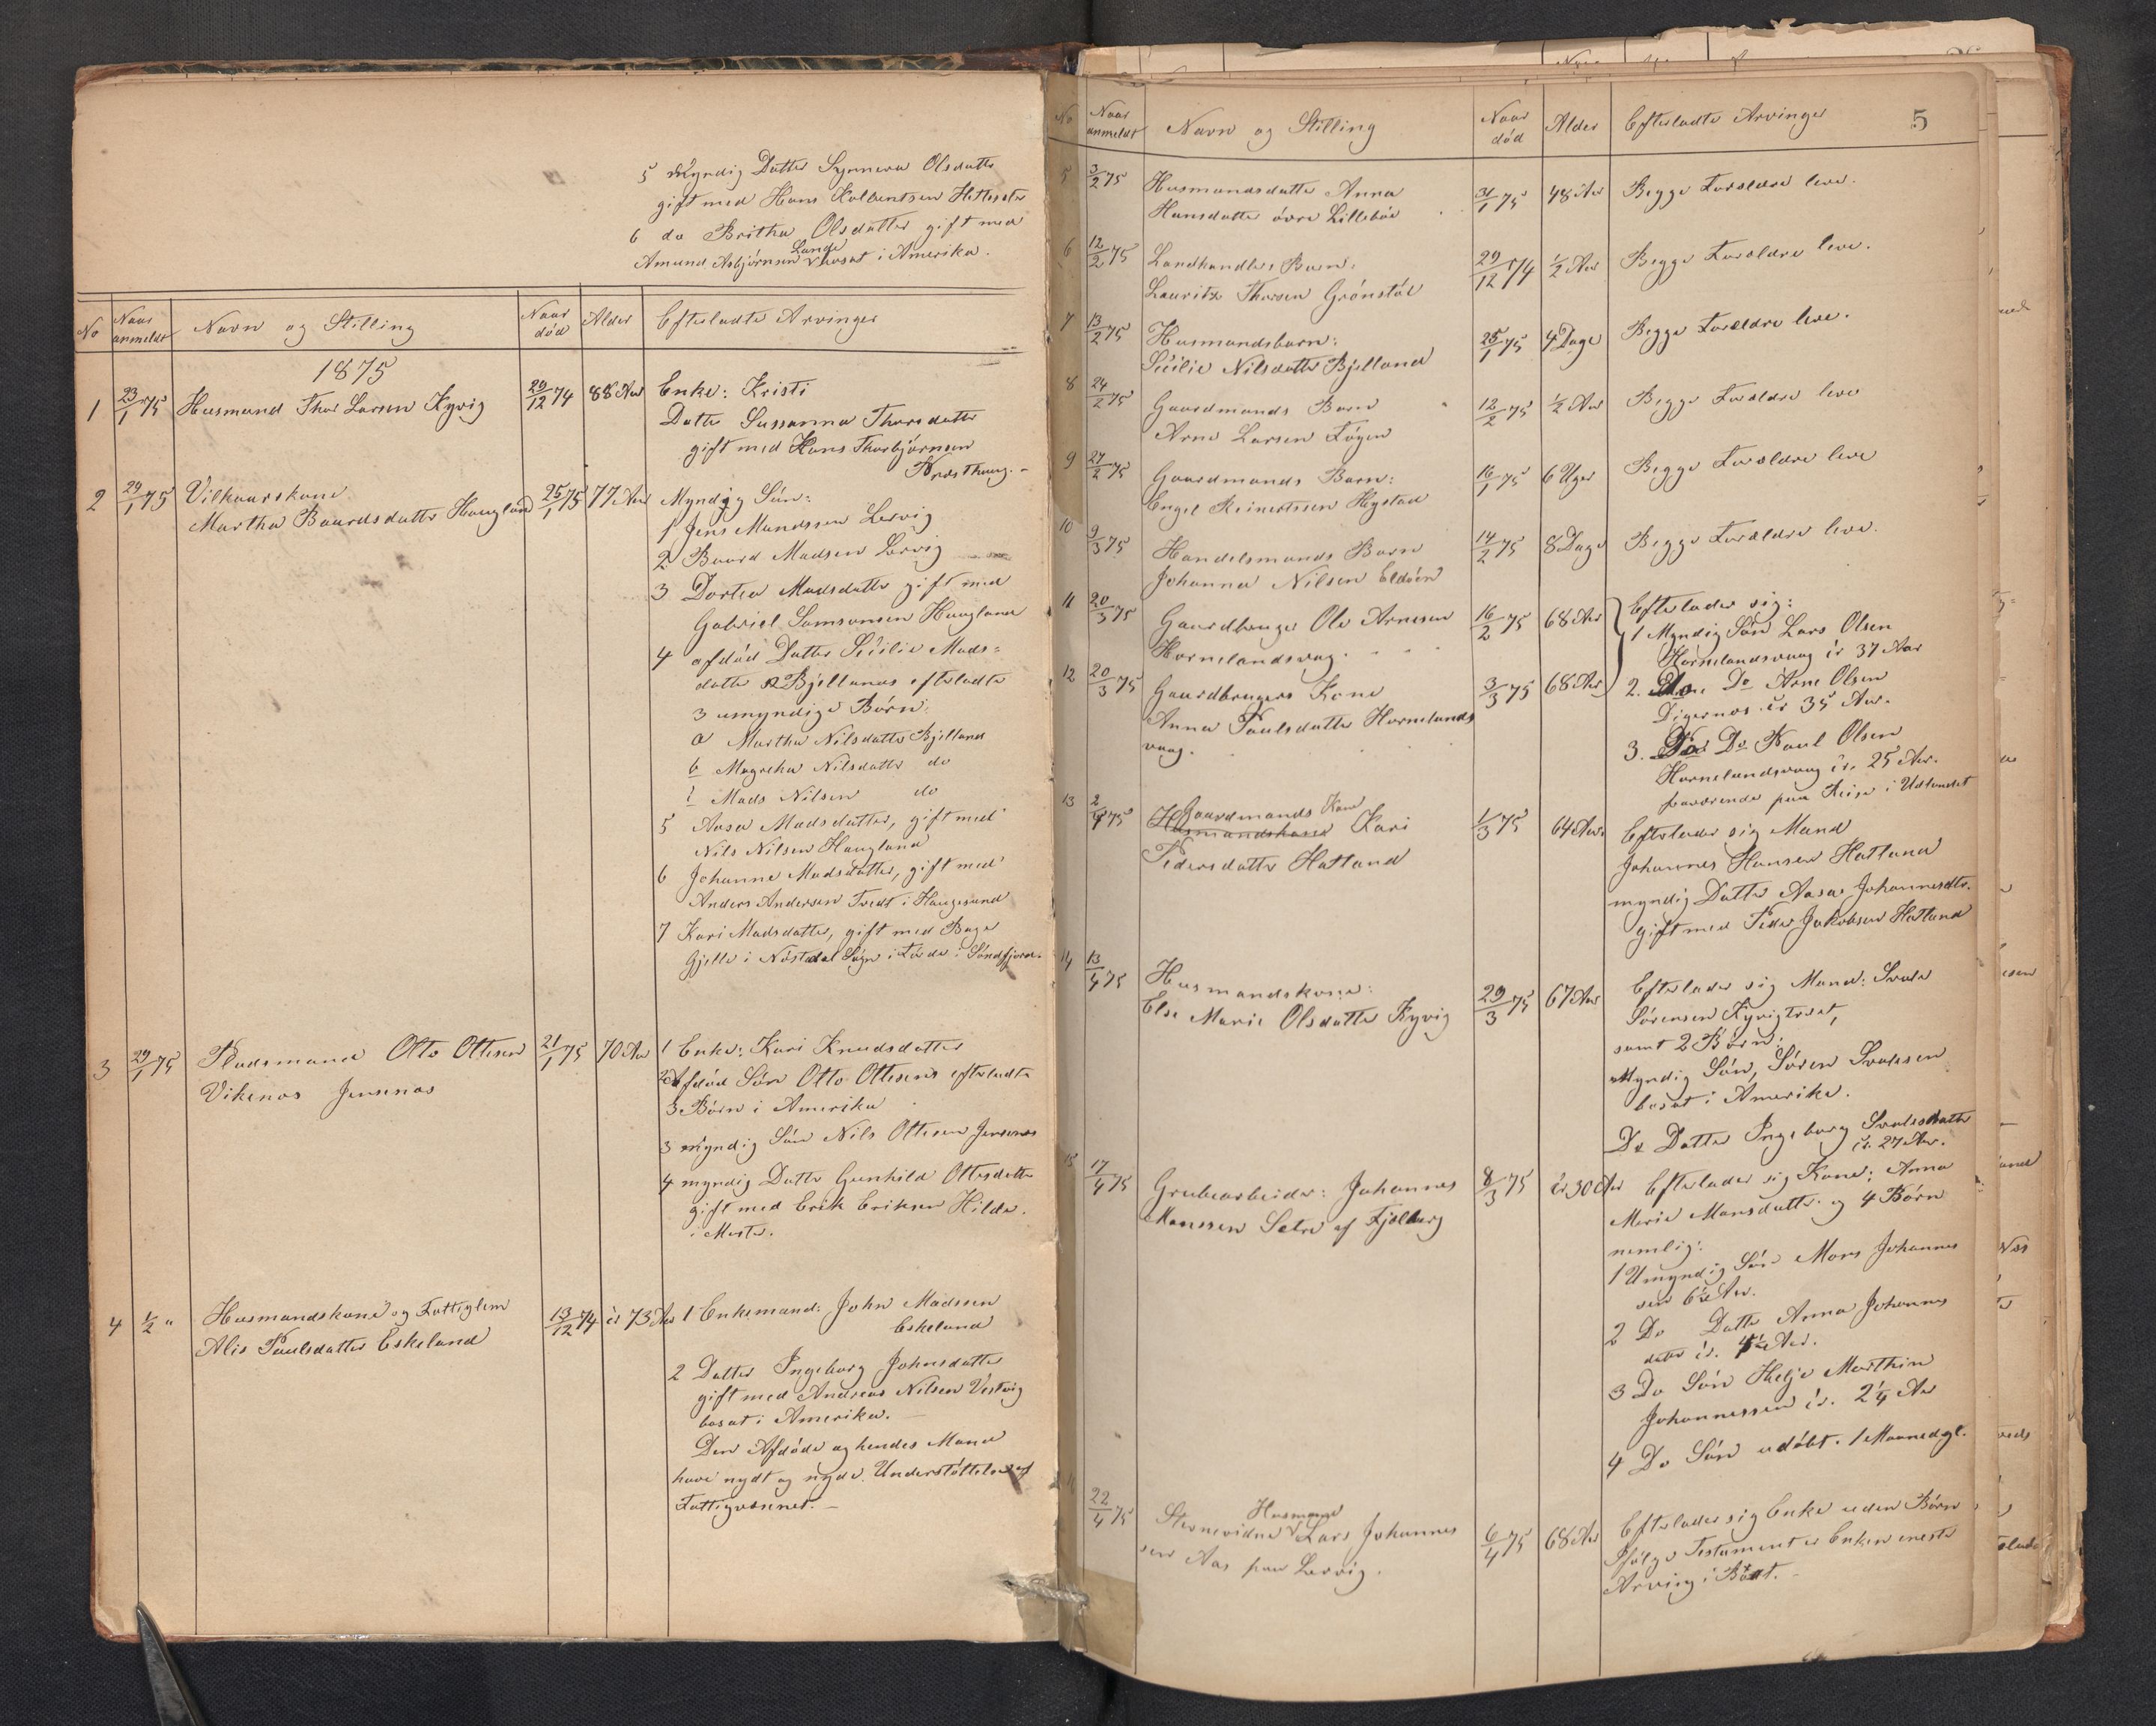 5 Myndig Datter Synneva Olsdatter
gift med Hans Kolbentsen
6 do Britha Olsdatter gift med
Lunde
Amund Asbjørnsen bosat i Amerika.
No Naar anmeldt Navn og Stilling Naar død Alder Efterladte Arvinger
1875
1 23/1 75 Husmand Thor Larsen Kyvig 29/12 74 88 Aar Enke: Kristi
Datter Sussanna Thorsdatter
gift med Hans Thorbjørnsen
2 29/1 75 Vilkaarskone 25/1 75 77 Aar Myndig Søn:
Martha Baardsdatter Haugland
1 Jens Mandssen Lervig
2 Baard Madsen Lervig
3 Dortea Madsdatter gift med
Gabriel Samsonsen Haugland
4 afdød Datter Sicilie Mads=
datter Bjellands efterladte
3 umyndige Børn:
a Martha Nilsdatter Bjelland
b Magretha Nilsdatter do
c Mads Nilsen do
5 Aasa Madsdatter, gift med
Nils Nilsen Haugland
6 Johanne Madsdatter, gift med
Anders Andersen Tvedt i Haugesund
7 Kari Madsdatter, gift med Bage
Gjelle i Nøstdal Sogn i Førde i Søndfjord.
3 29/1 75 Pladsmand Otto Ottesen 21/1 75 70 Aar 1 Enke: Kari Knudsdatter
Vikenes Jensenes
2 Afdød Søn Otto Ottesens efterladte
3 Børn i Amerika
3 myndig Søn Nils Ottesen Jensenes
4 myndig Datter Gunhild Ottesdatter
gift med Erik Eriksen Hilde.
4 1/2 " Husmandskone og Fattiglem 13/12 74 ca 73 Aar 1 Enkemand: John Madssen
Eskeland
Alis Paulsdatter Eskeland
2 Datter Ingeborg Johnsdatter
gift med Andreas Nilsen Vestvig
bosat i Amerika.
Den Afdøde og hendes Mand
have nydt og nyde Understøttelse af
Fattigvæsenet.
5
No Naar anmeldt Navn og Stilling Naar død Alder Efterladte Arvinger
5 3/2 75 Husmandsdatter Anna 31/1 75 48 Aar Begge Forældre leve.
Hansdatter øvre Lillebøe
6 12/2 75 Landhandlers Barn: 29/12 74 1/2 Aar Begge Forældre leve.
Lauritz Thorsen Grønstøl
7 13/2 75 Husmandsbarn: 25/1 75 4 Dage Begge Forældre leve.
Sicilie Nilsdatter Bjelland
8 24/2 75 Gaardmands Barn 12/2 75 1/2 Aar Begge Forældre leve
Arne Larsen Føyen
9 27/2 75 Gaardmands Barn: 16/1 75 6 Uger Begge Forældre leve
Engel Reinertssen Hystad
10 9/3 75 Handelsmands Barn 14/2 75 8 Dage Begge Forældre leve.
Johanna Nilsen Eldøen
11 20/3 75 Gaardbruger Ole Arnesen 16/2 75 68 Aar Efterlader sig:
Hornelandsvaag.
1 Myndig Søn Lars Olsen
Hornelandsvaag ca 37 Aar
12 20/3 75 Gaardbrugers Kone 3/3 75 68 Aar 2. Do Do Arne Olsen
Anna Paulsdatter Hornelands
vaag.
Digernes ca 35 Aar.
3. Do Do Paul Olsen
Hornelandsvaag ca. 25 Aar.
fraværende paa Reise i Udlandet
13 2/4 75 Gaardmands Kone
Husmandskone Kari 1/3 75 64 Aar Efterlader sig Mand
Pedersdatter Hatland
Johannes Hansen Hatland
myndig Datter Aasa Johannesdtr.
gift med Peder Jakobsen Hatland
14 13/4 75 Husmandskone: 29/3 75 67 Aar Efterlader sig Mand: Svale
Else Marie Olsdatter Kyvig
Sørensen Kyvigtræet,
samt 2 Børn:
Myndig Søn, Søren Svalesen
bosat i Amerika.
Do Datter Ingeborg Svalesdatter
ca. 27 Aar.
15 17/4 75 Grubearbeider: Johannes 8/3 75 ca 30 Aar Efterlader sig Kone: Anna
Monssen Setre af Fjelberg
Merie Monsdatter og 4 Børn
nemlig:
1 Umyndig Søn Mons Johannes
sen 6 1/2 Aar.
2 Do Datter Anna Johannes
datter ca. 4 1/2 Aar.
3 Do Søn Helje Marthin
Johannessen ca. 2 1/4 Aar
4 Do Søn udøbt. 1 Maaned gl.
22/4 75 Husmand
Stevnevidne Lars Johannes 6/4 75 68 Aar Efterlader sig Enke uden Børn
sen Aas paa Lervig.
Ifølge Testament er Enken eneste
Arving i Boet.